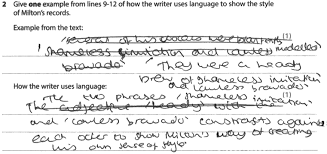 2 Give one example from lines 9-12 of how the writer uses language to show the style
of Milton's records.
Example from the text:
(1)
'shameless imitation and careless
bravado' They were a heady
brew of shameless imitation
and careless bravado
How the writer uses language:
The two phrases 'shameless imitation'
(1)
and 'careless bravado' constrasts against
each other to show Milton's way of creating
his own sense of style